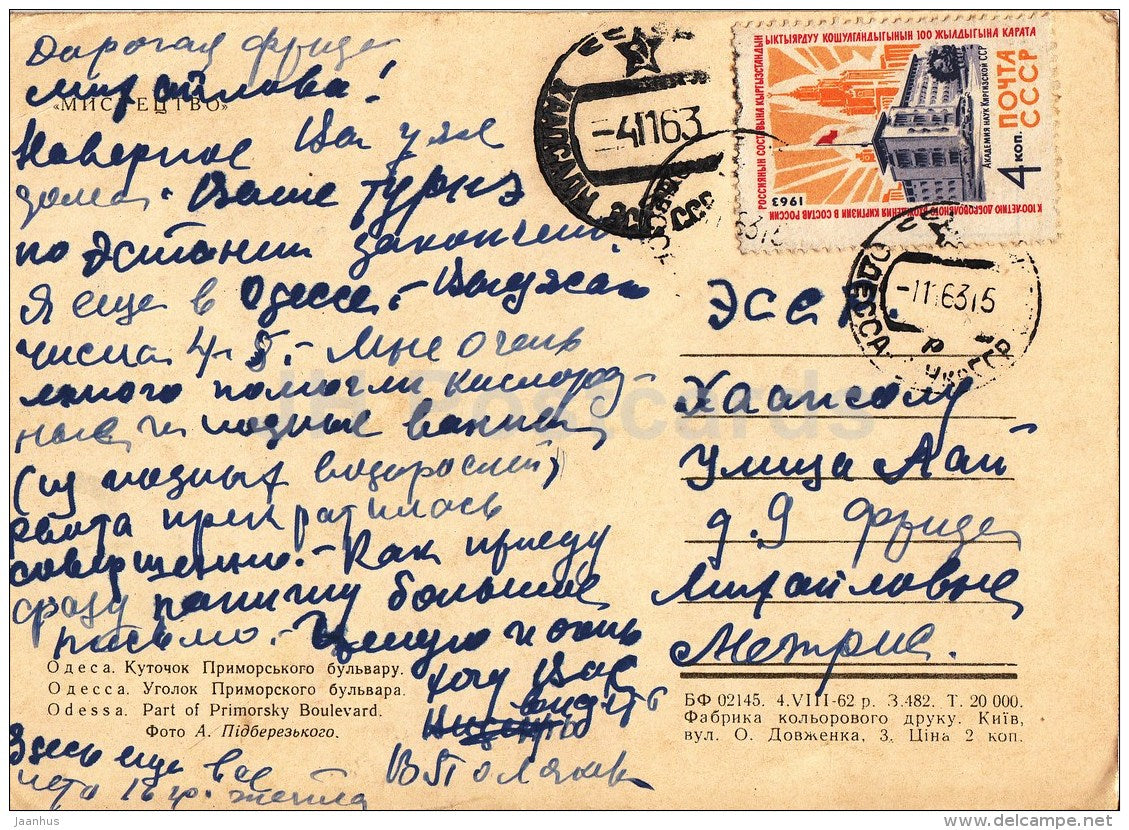 Дорогая Фрида
Михайловна!
«МИСТЕЦТВО»
Наверное Вы уже
дома. Ваше турнэ
по Эстонии закончен.
Я еще в Одессе. Выезжаю
числа 4-5. Мне очень
много помогли кислород-
ные и иодные ванны
(из иодных водорослей)
рвота прекратилась
совершенно. Как приеду
сразу напишу большое
письмо. Целую и очень
хочу Вас
видеть
В Полякова
Здесь еще все
лето 16 гр. тепла
Одеса. Куточок Приморського бульвару.
Одесса. Уголок Приморского бульвара.
Odessa. Part of Primorsky Boulevard.
Фото А. Підберезького.
ЫКТЫЯРДУУ КОШУЛГАНДЫГЫНЫН 100 ЖЫЛДЫГЫНА КАРАТА
РОССИЯНЫН СОСТАВЫНА КЫРГЫЗСТАНДЫН
К 100-ЛЕТИЮ ДОБРОВОЛЬНОГО ВХОЖДЕНИЯ КИРГИЗИИ В СОСТАВ РОССИИ
1963
Академия наук Киргизской ССР
ПОЧТА
СССР
4 КОП.
-41163
-1116315
ОДЕССА
ЭССР.
Хаапсалу
Улица Аай
д. 9 Фриде
Михайловне
Метрис.
БФ 02145. 4.VIII-62 р. З.482. Т. 20 000.
Фабрика кольорового друку. Київ,
вул. О. Довженка, 3. Ціна 2 коп.
JH Postcards
Jaanhus
delcampe.net